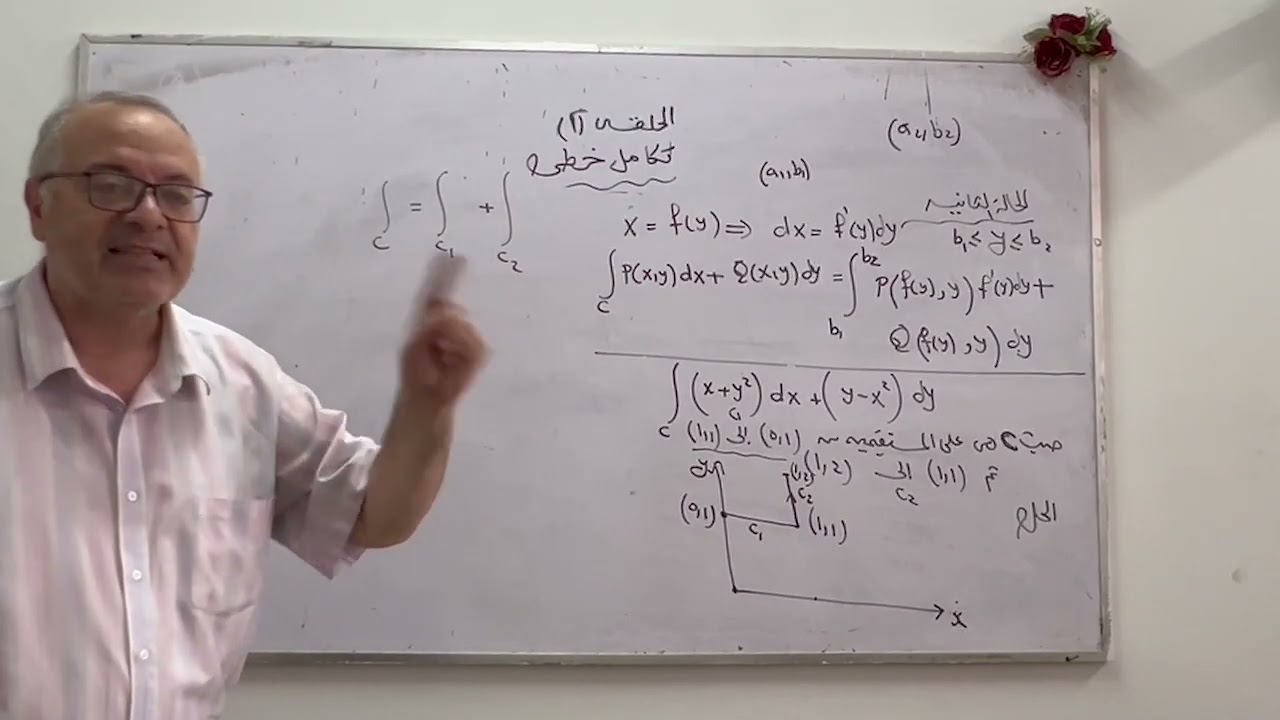 الحلقة (2)
تكامل خطي
(a₂, b₂)
(a₁, b₁)
∫_C = ∫_C₁ + ∫_C₂
الحالة الثانية
x = f(y) ⇒ dx = f'(y)dy
b₁ ≤ y ≤ b₂
∫_C P(x,y)dx + Q(x,y)dy = ∫_{b₁}^{b₂} P(f(y), y) f'(y)dy +
Q(f(y), y) dy
∫_C (x+y²) dx + (y-x²) dy
C₁
حيث C هي على المستقيم من (0,1) الى (1,1)
ثم (1,1) الى (1,2)
C₂
y
(1,2)
C₂
(0,1)
C₁
(1,1)
الحل
x